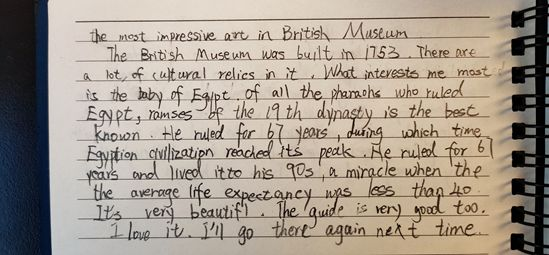 the most impressive art in British Museum
The British Museum was built in 1753. There are
a lot of cultural relics in it. What interests me most
is the baby of Egypt. of all the pharaohs who ruled
Egypt, ramses of the 19th dynasty is the best
known. He ruled for 67 years, during which time
Egyption civilization reached its peak. He ruled for 67
years and lived itto his 90s, a miracle when the
the average life expectancy was less than 40.
It's very beautifl. The guide is very good too.
I love it. I'll go there again next time.